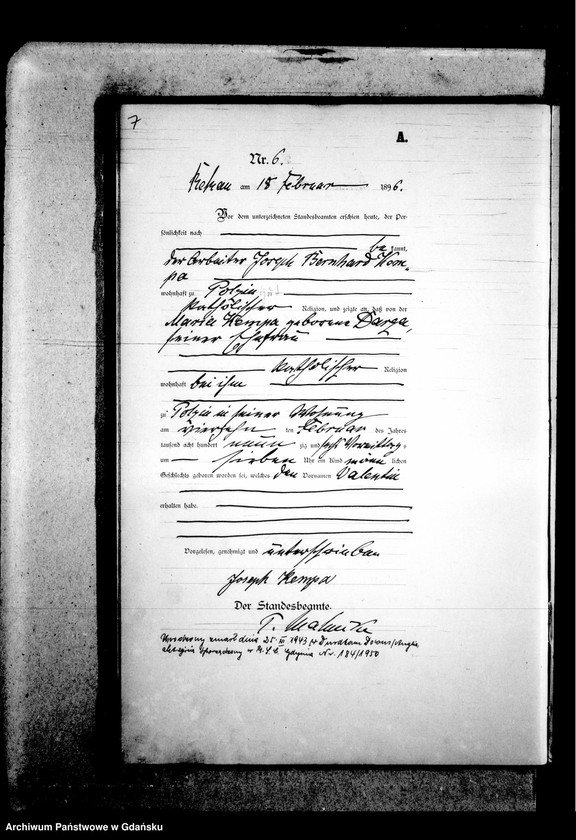 7
A.
Nr. 6.
am 18 Februar 1896.
Vor dem unterzeichneten Standesbeamten erschien heute, der Per-
sönlichkeit nach
be kannt,
der Arbeiter Joseph Bernhard Kem-
pa
wohnhaft zu Polzin
katholischer Religion, und zeigte an, daß von der
Maria Kempa geborene Darga,
seiner Ehefrau
katholischer Religion
wohnhaft bei ihm
zu Polzin in seiner Wohnung
am vierzehn ten Februar des Jahres
tausend acht hundert neun zig und sechs Vormittags
um sieben Uhr ein Kind männ lichen
Geschlechts geboren worden sei, welches den Vornamen Valentin
erhalten habe.
Vorgelesen, genehmigt und unterschrieben
Joseph Kempa
Der Standesbeamte.
zmarł dnia 25. 1943 w Durdham Downs/Anglia
w M.S.C. Gdynia Nr. 184/1950
Archiwum Państwowe w Gdańsku